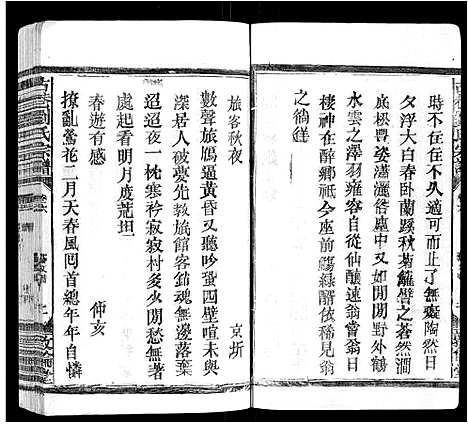 時不在仕不久適可而止了無癡陶然日
夕浮大白春臥蘭蹊秋菊籬磬之蒼然澗
底松豐奕瀟灑咎塵中又如閒閒野外鶴
水雲之澤羽雍容自從仙醸遠翁當翁日
棲神在醉鄉祇今座前觴綠醑依稀見翁
之徜徉
旅客秋夜
京圻
數聲旅鴈逼黃昏又聽吟蛩四壁喧未與
深居人破夢先教旅館客銷魂無邊落葉
迢迢夜一枕寒衾寂寂村多少閒愁無著
處起看明月度荒坦
春遊有感
仲亥
撩亂鶯花二月天春風囘首總年年自憐